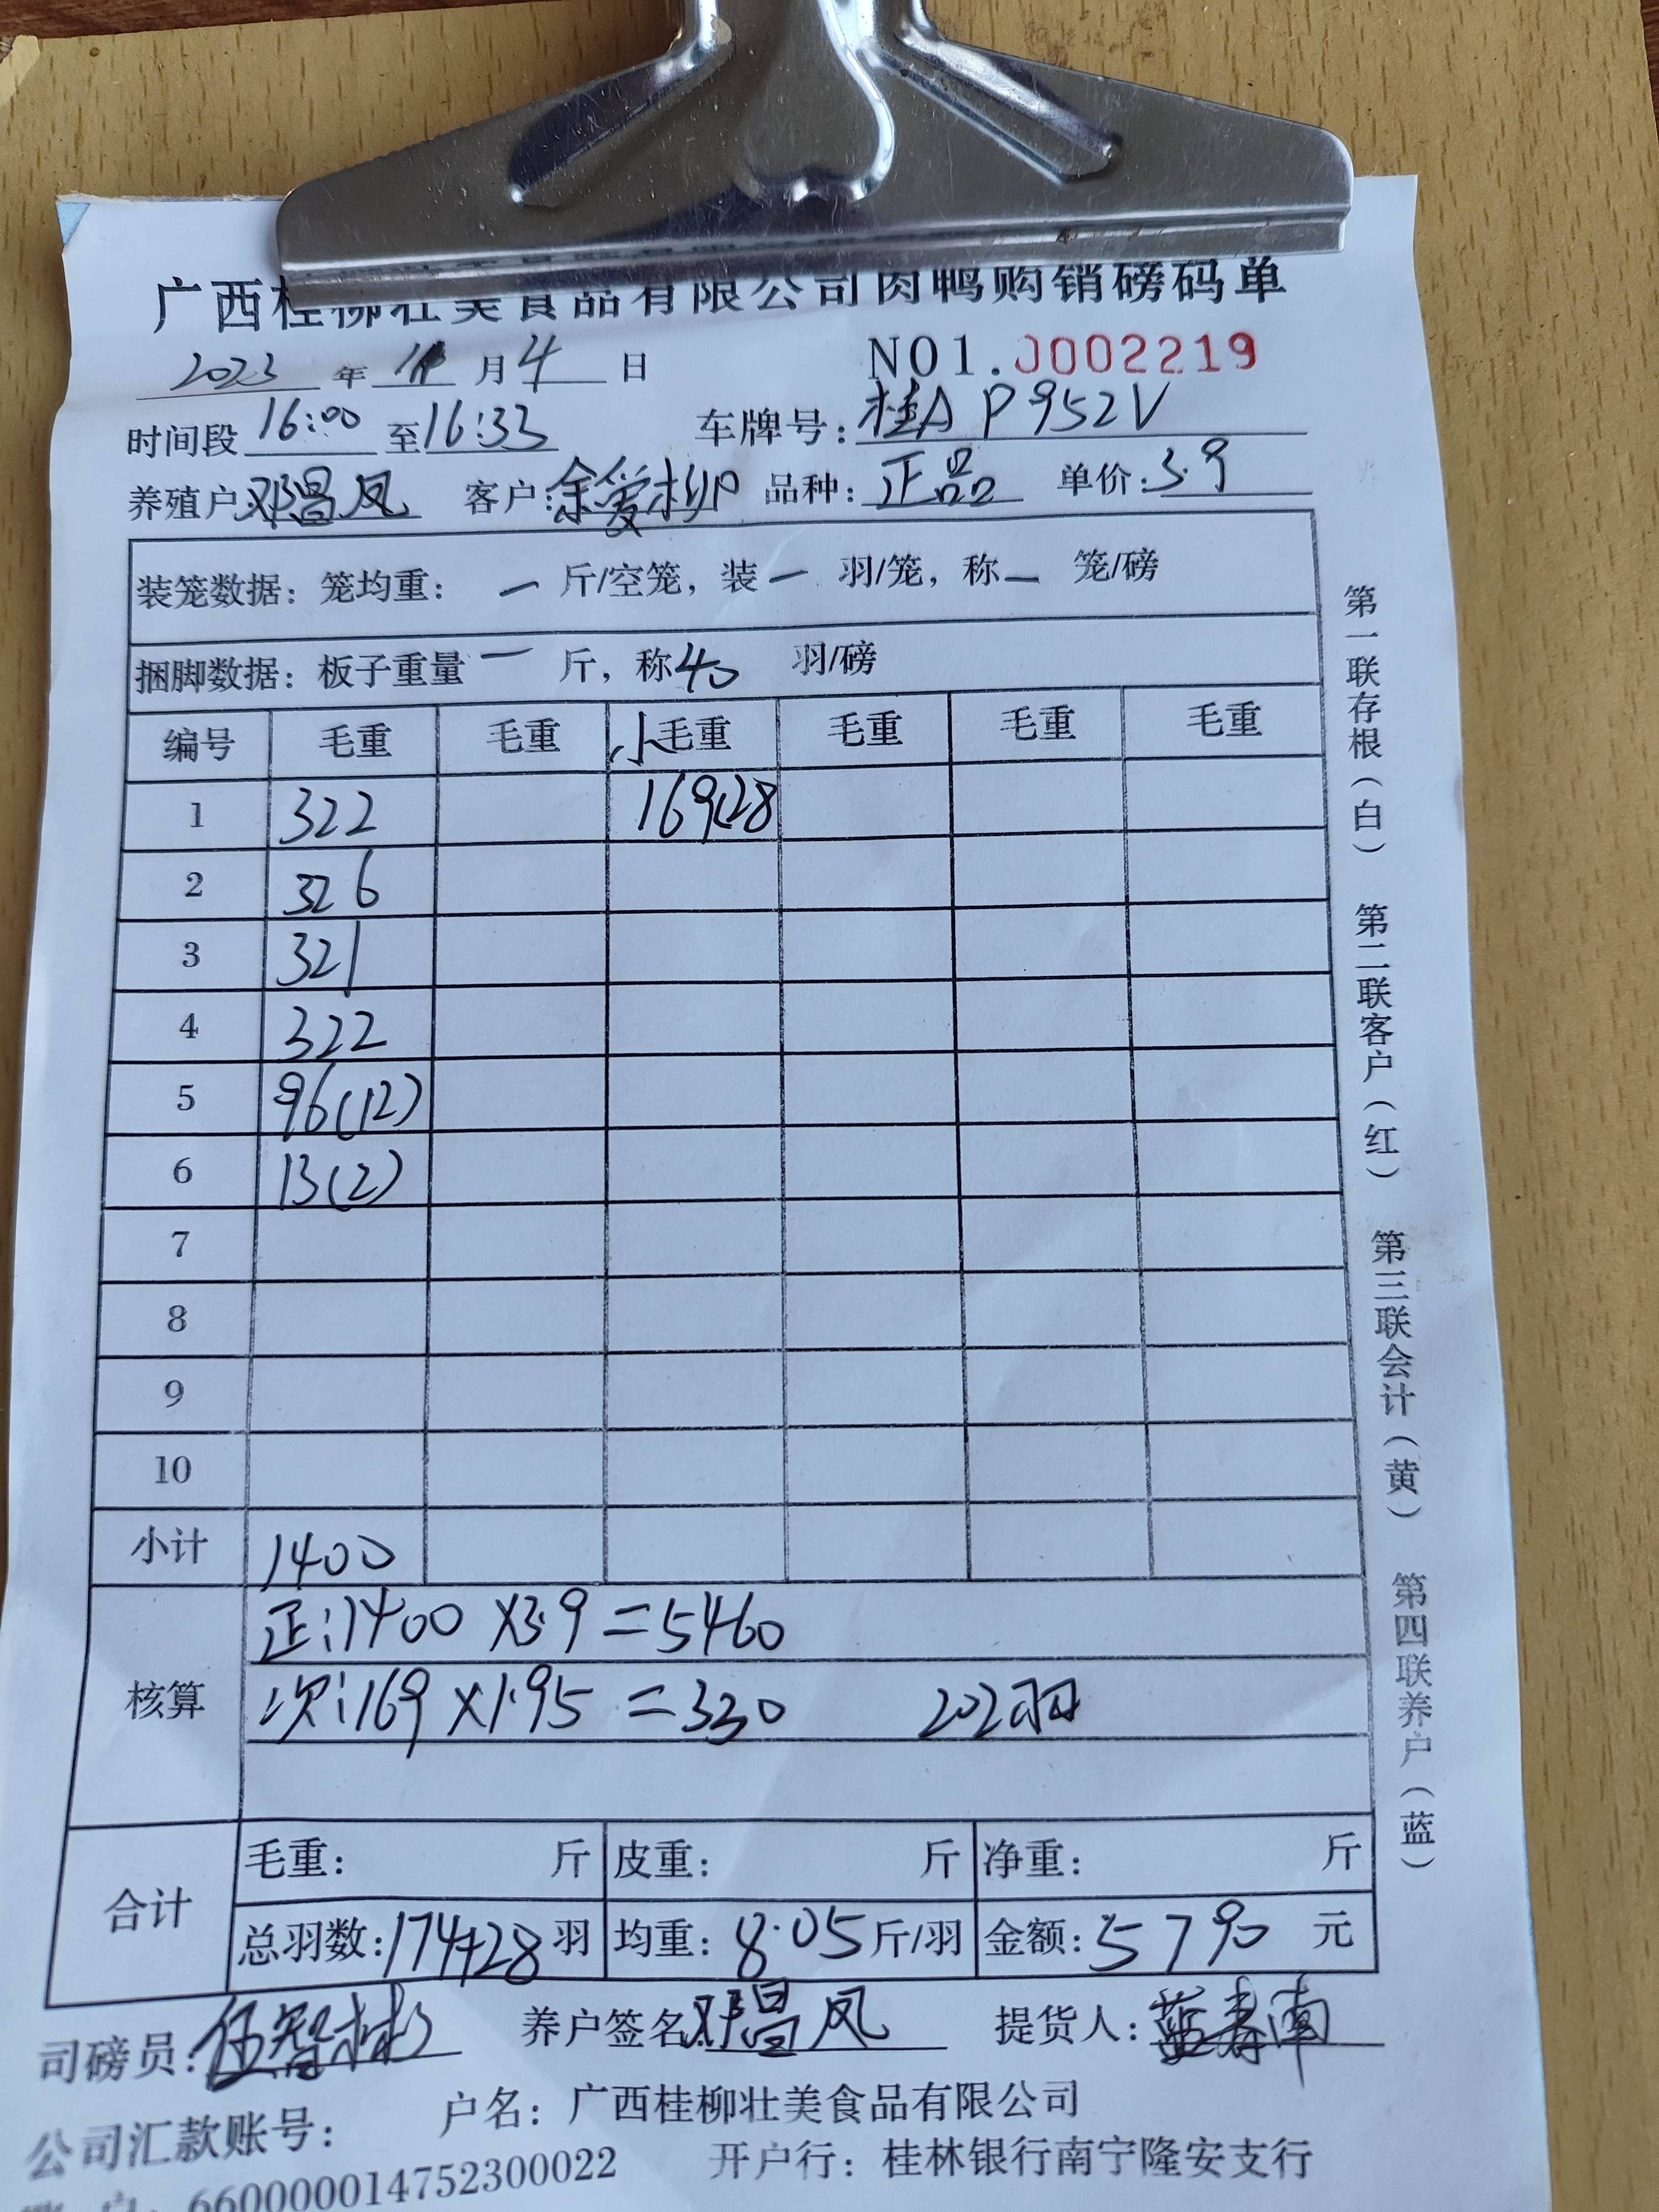 广西桂柳壮美食品有限公司肉鸭购销磅码单
2023 年 月 4 日 NO1.J002219
时间段 16:00 至 16:33 车牌号: 桂A P952V
养殖户 邓昌凤 客户: 余爱柳 品种: 正品 单价: 3.9
装笼数据: 笼均重: — 斤/空笼, 装 — 羽/笼, 称 — 笼/磅
捆脚数据: 板子重量 — 斤, 称 40 羽/磅
编号 毛重 毛重 小毛重 毛重 毛重 毛重
1 322 169(28
2 326
3 321
4 322
5 96(12)
6 13(2)
7
8
9
10
小计 1400
核算 正:1400×3.9=5460
次:169×1.95=330 202羽
合计 毛重: 斤 皮重: 斤 净重: 斤
总羽数: 174+28 羽 均重: 8.05 斤/羽 金额: 5790 元
司磅员: 伍智彬 养户签名 邓昌凤 提货人: 蓝春南
公司汇款账号: 户名: 广西桂柳壮美食品有限公司
户: 660000014752300022 开户行: 桂林银行南宁隆安支行
第一联存根(白) 第二联客户(红) 第三联会计(黄) 第四联养户(蓝)